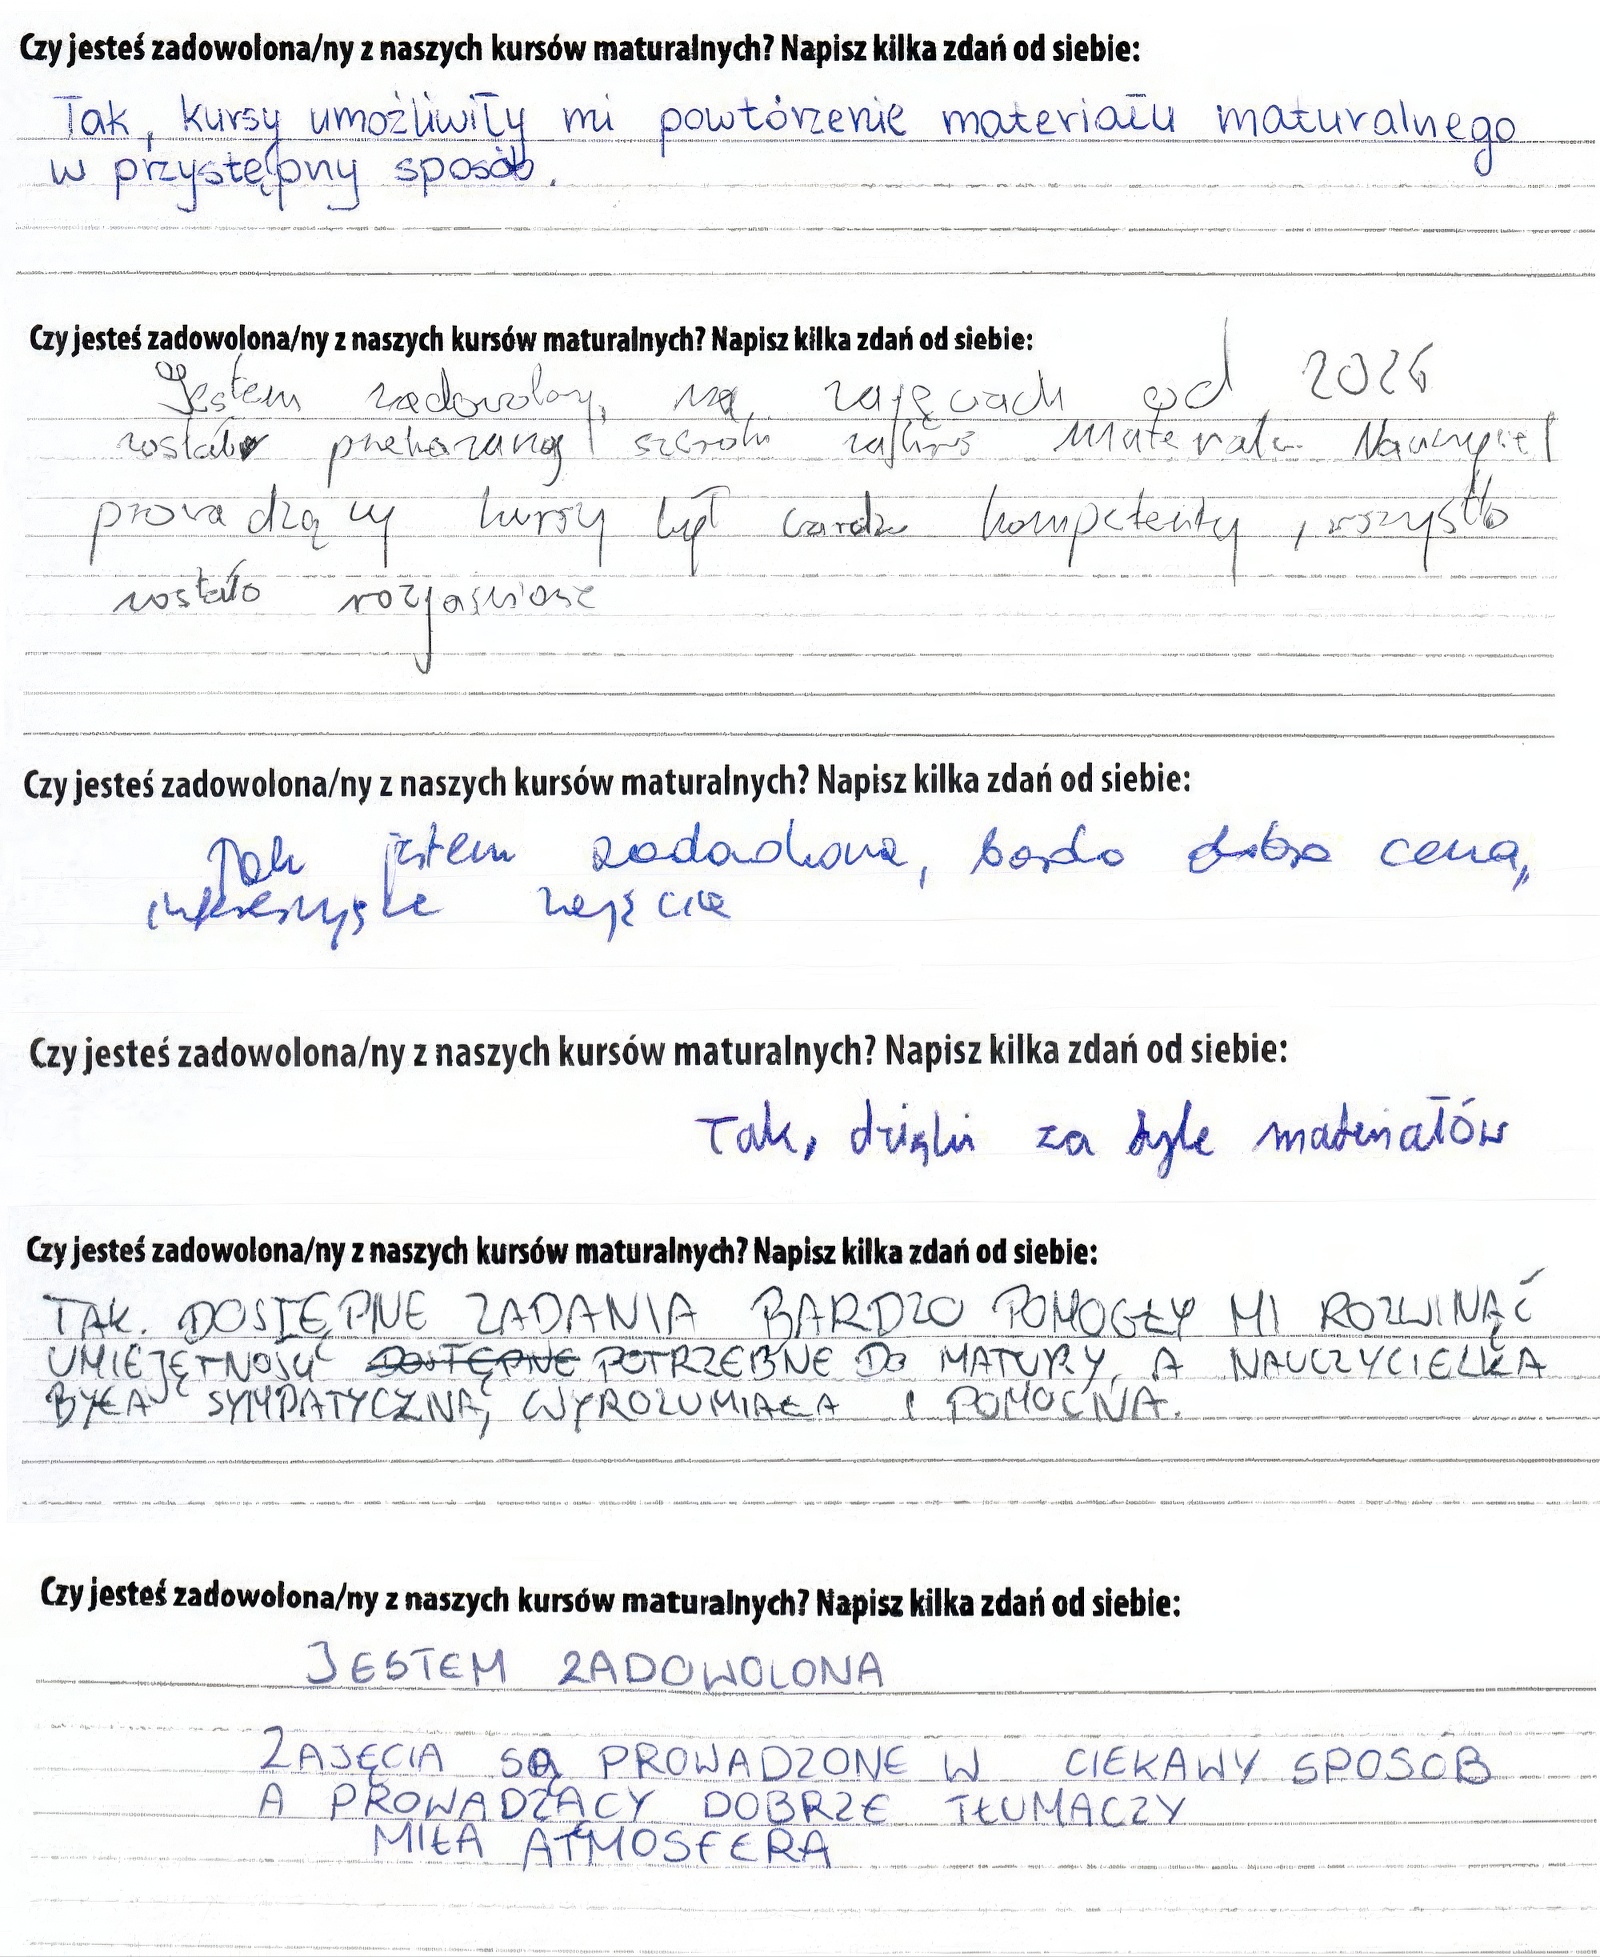 Czy jesteś zadowolona/ny z naszych kursów maturalnych? Napisz kilka zdań od siebie:
Tak, kursy umożliwiły mi powtórzenie materiału maturalnego
w przystępny sposób.
Czy jesteś zadowolona/ny z naszych kursów maturalnych? Napisz kilka zdań od siebie:
Jestem zadowolony, na zajęciach od
został przekazany szeroki zakres materiału Nauczyciel
prowadzący kursy był bardzo kompetentny, wszystko
zostało rozjaśnione
Czy jesteś zadowolona/ny z naszych kursów maturalnych? Napisz kilka zdań od siebie:
Tak jestem zadowolona, bardzo dobra cena,
interesujące zajęcia
Czy jesteś zadowolona/ny z naszych kursów maturalnych? Napisz kilka zdań od siebie:
Tak, dzięki za tyle materiałów
Czy jesteś zadowolona/ny z naszych kursów maturalnych? Napisz kilka zdań od siebie:
TAK. DOSTĘPNE ZADANIA BARDZO POMOGŁY MI ROZWINĄĆ
UMIEJĘTNOŚCI DOSTĘPNE POTRZEBNE DO MATURY, A NAUCZYCIELKA
BYŁA SYMPATYCZNA, WYROZUMIAŁA I POMOCNA.
Czy jesteś zadowolona/ny z naszych kursów maturalnych? Napisz kilka zdań od siebie:
JESTEM ZADOWOLONA
ZAJĘCIA SĄ PROWADZONE W CIEKAWY SPOSÓB
A PROWADZĄCY DOBRZE TŁUMACZY
MIŁA ATMOSFERA